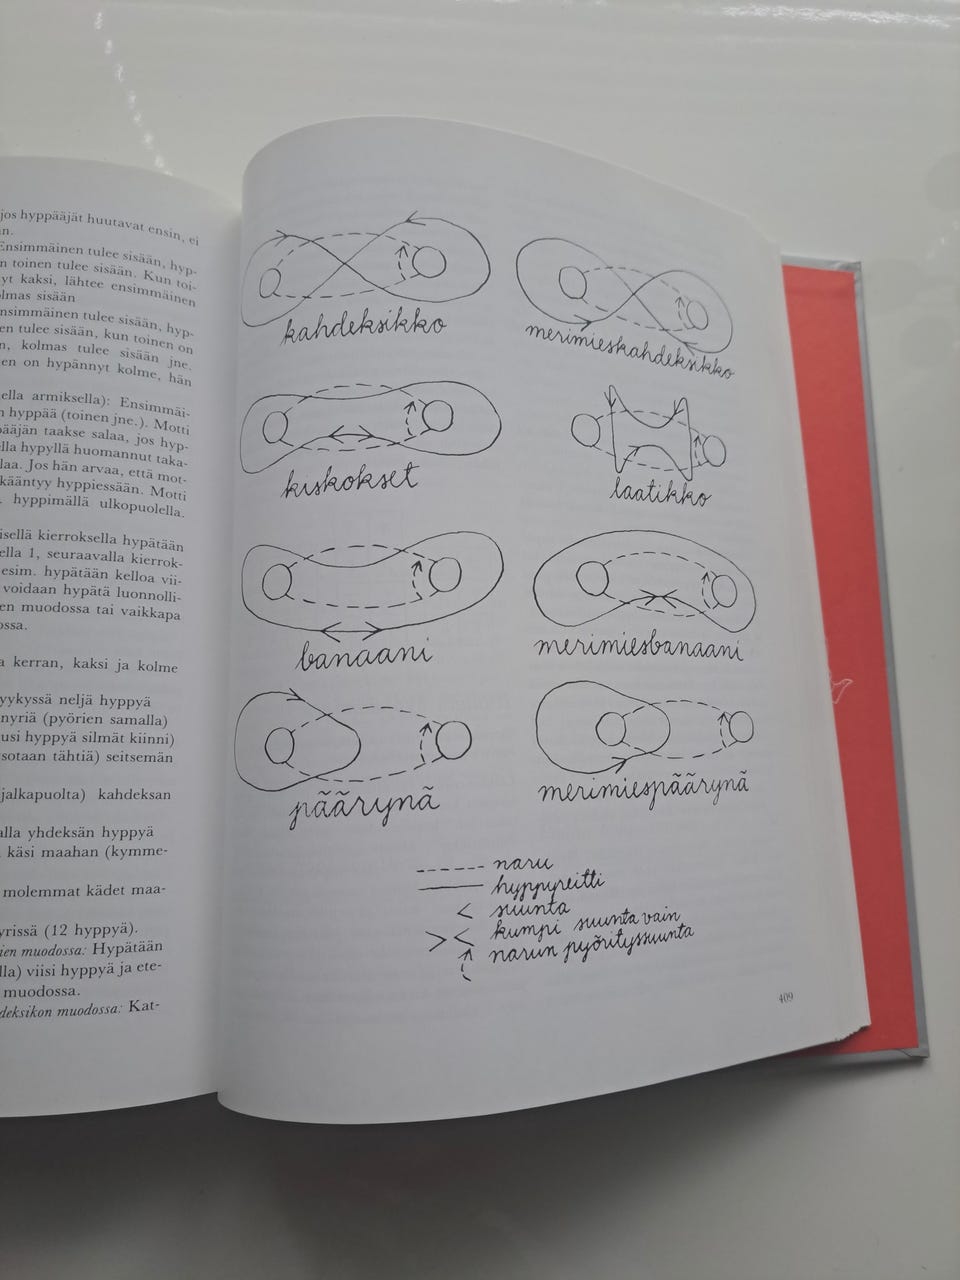 jos hyppääjät huutavat ensin, ei
än.
Ensimmäinen tulee sisään, hyp-
n toinen tulee sisään. Kun toi-
yt kaksi, lähtee ensimmäinen
olmas sisään
nsimmäinen tulee sisään, hyp-
en tulee sisään, kun toinen on
n, kolmas tulee sisään jne.
en on hypännyt kolme, hän
ella armiksella): Ensimmäi-
n hyppää (toinen jne.). Motti
pääjän taakse salaa, jos hyp-
ella hypyllä huomannut taka-
laa. Jos hän arvaa, että mot-
kääntyy hyppiessään. Motti
hyppimällä ulkopuolella.
isellä kierroksella hypätään
ella 1, seuraavalla kierrok-
esim. hypätään kelloa vii-
voidaan hypätä luonnolli-
en muodossa tai vaikkapa
ossa.
a kerran, kaksi ja kolme
yykyssä neljä hyppyä
nyriä (pyörien samalla)
usi hyppyä silmät kiinni)
sotaan tähtiä) seitsemän
jalkapuolta) kahdeksan
alla yhdeksän hyppyä
käsi maahan (kymme-
molemmat kädet maa-
yrissä (12 hyppyä).
ien muodossa: Hypätään
lla) viisi hyppyä ja ete-
muodossa.
deksikon muodossa: Kat-
kahdeksikko
merimieskahdeksikko
kiskokset
laatikko
banaani
merimiesbanaani
päärynä
merimiespäärynä
naru
hyppyreitti
suunta
kumpi suunta vain
narun pyörityssuunta
409